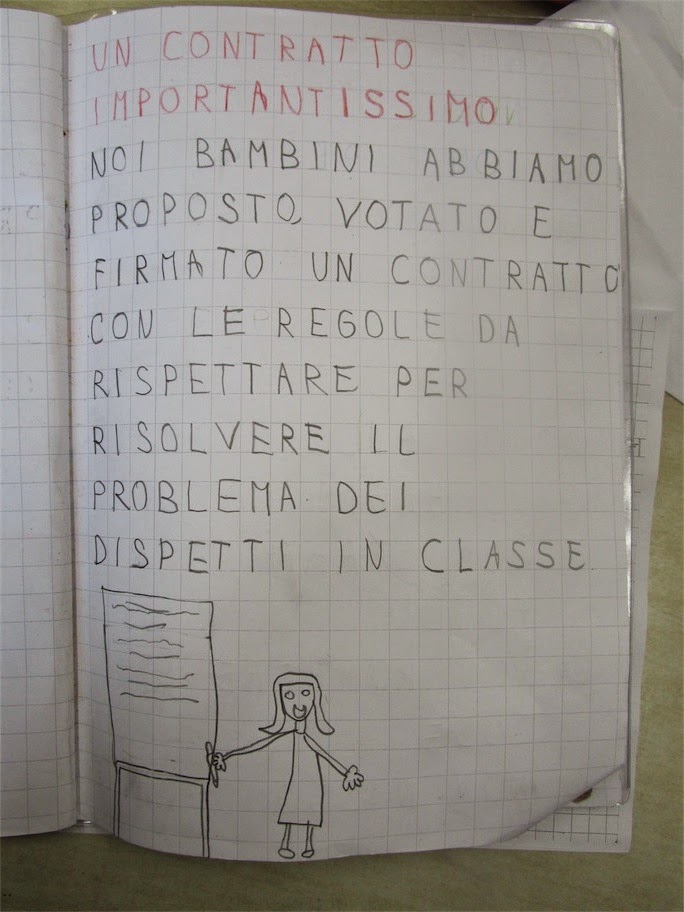 UN CONTRATTO
IMPORTANTISSIMO
NOI BAMBINI ABBIAMO
PROPOSTO, VOTATO E
FIRMATO UN CONTRATTO
CON LE REGOLE DA
RISPETTARE PER
RISOLVERE IL
PROBLEMA DEI
DISPETTI IN CLASSE.